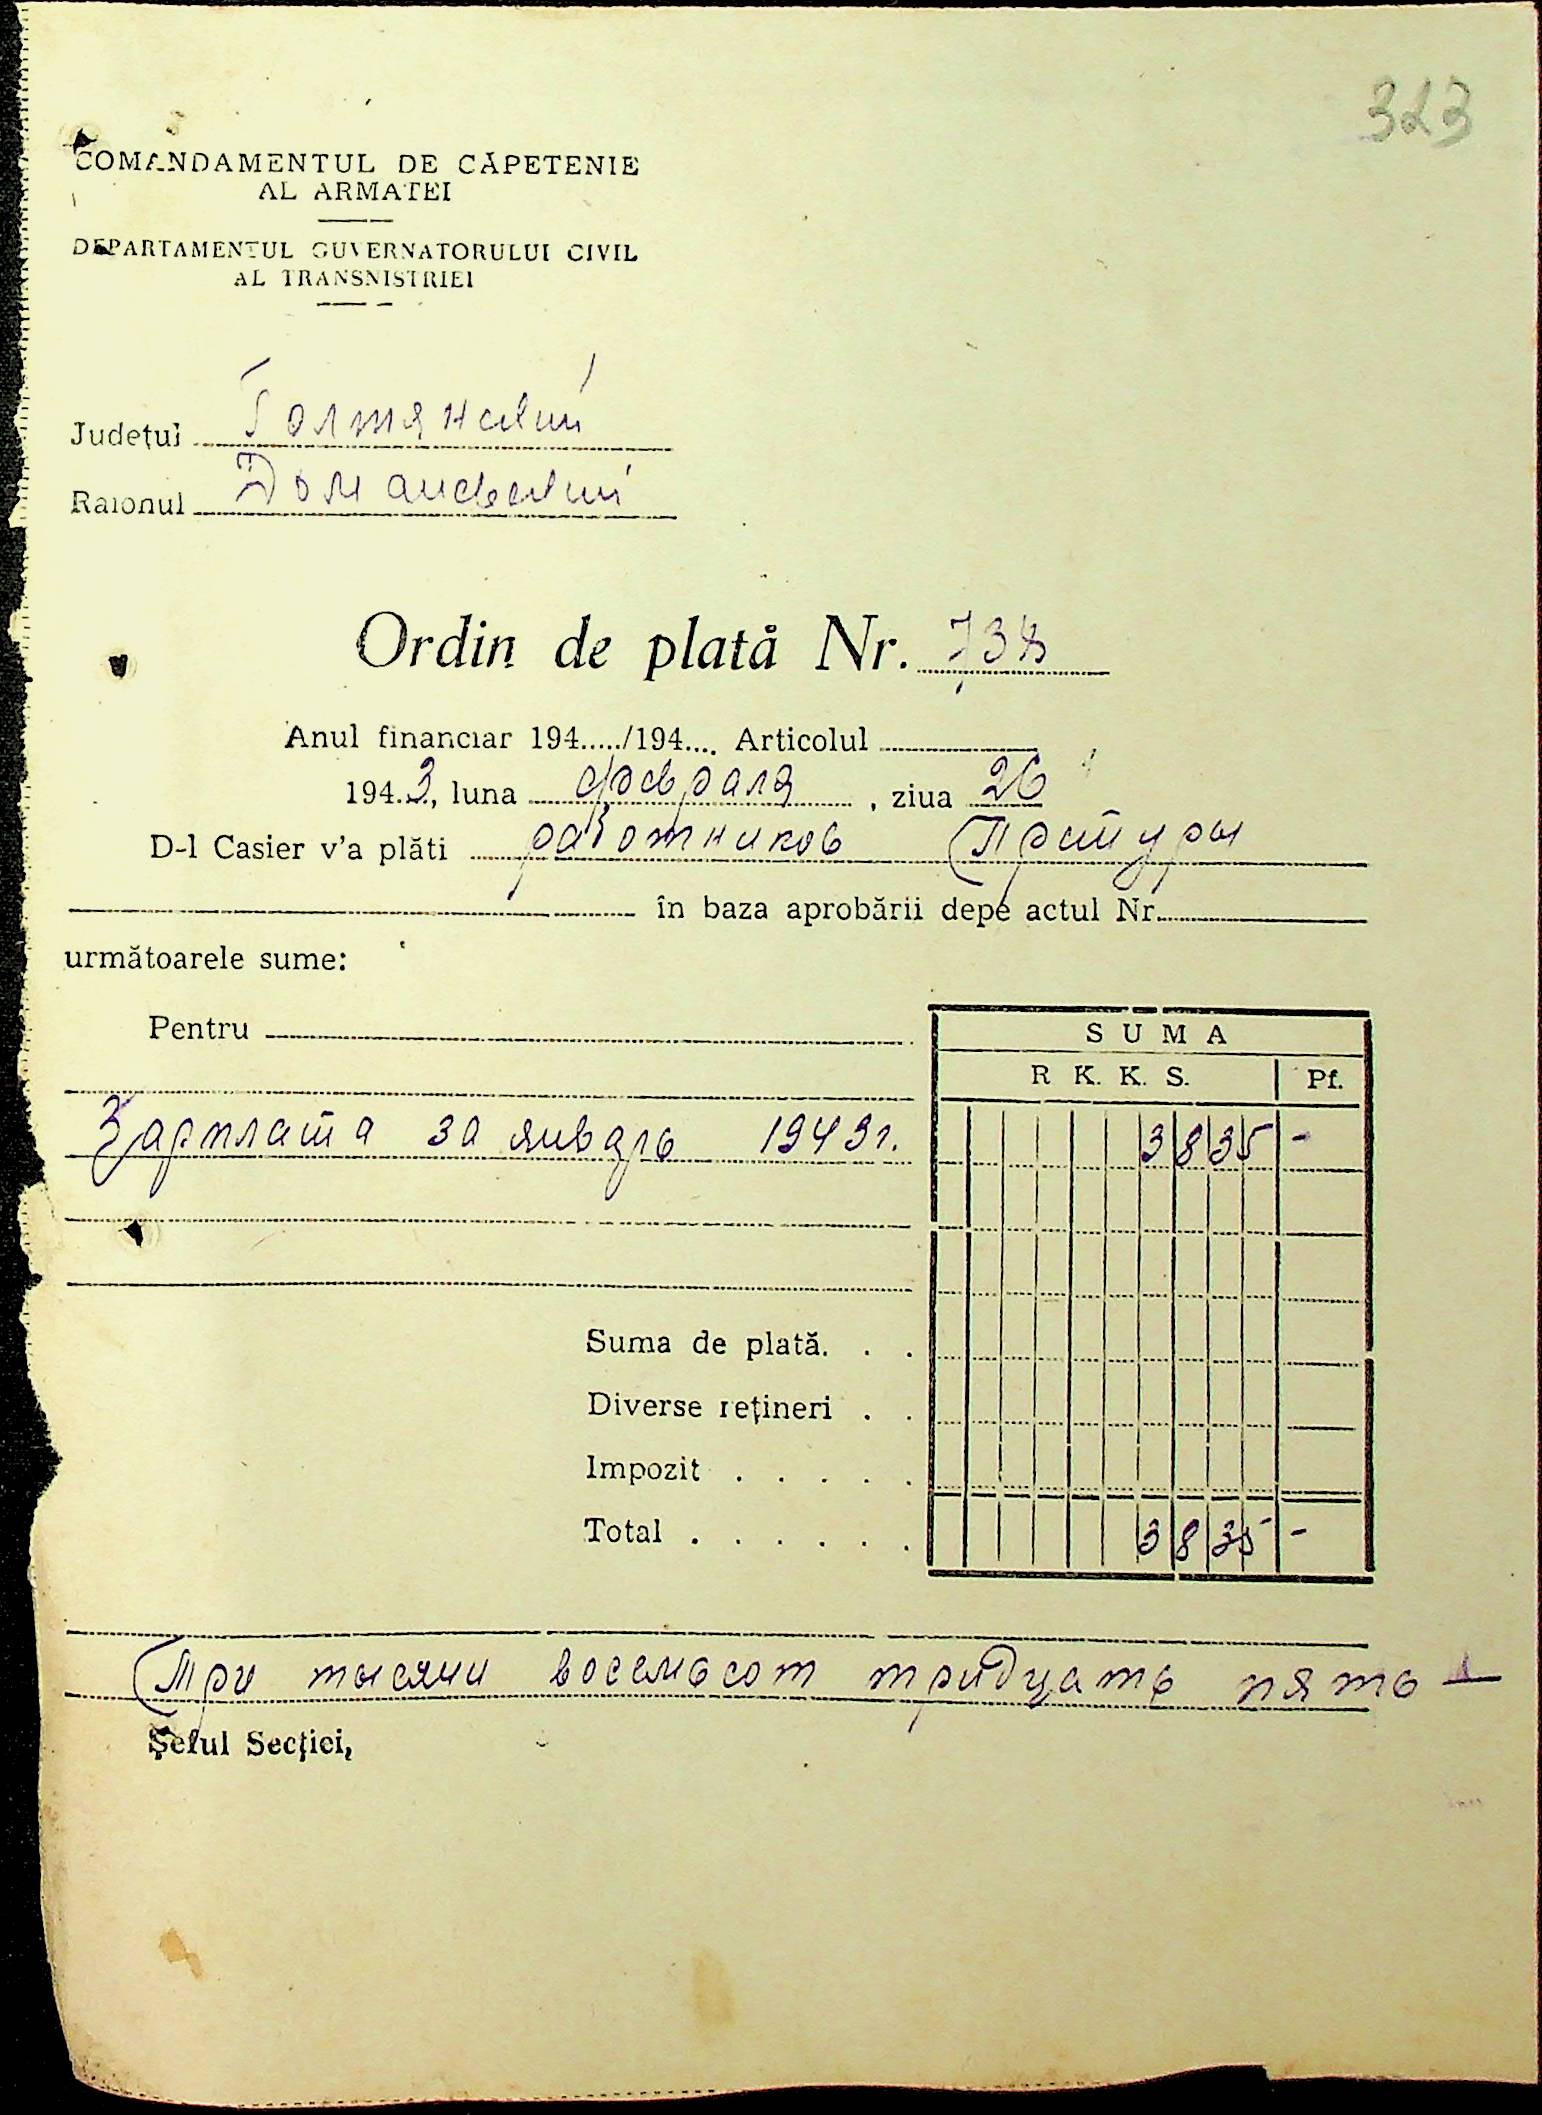 323
COMANDAMENTUL DE CĂPETENIE
AL ARMATEI
DEPARTAMENTUL GUVERNATORULUI CIVIL
AL TRANSNISTRIEI
Județul Голтянский
Raionul Доманевский
Ordin de plată Nr. 738
Anul financiar 194...../194.... Articolul
194.3, luna февраля, ziua 26
D-l Casier v'a plăti работников Претуры
în baza aprobării depe actul Nr.
următoarele sume:
Pentru
SUMA
R K. K. S. Pf.
Зарплата за январь 1943г. 3835 -
Suma de plată. . .
Diverse rețineri . .
Impozit . . . . .
Total . . . . . . 3835 -
Три тысячи восемьсот тридцать пять
Șeful Secției,